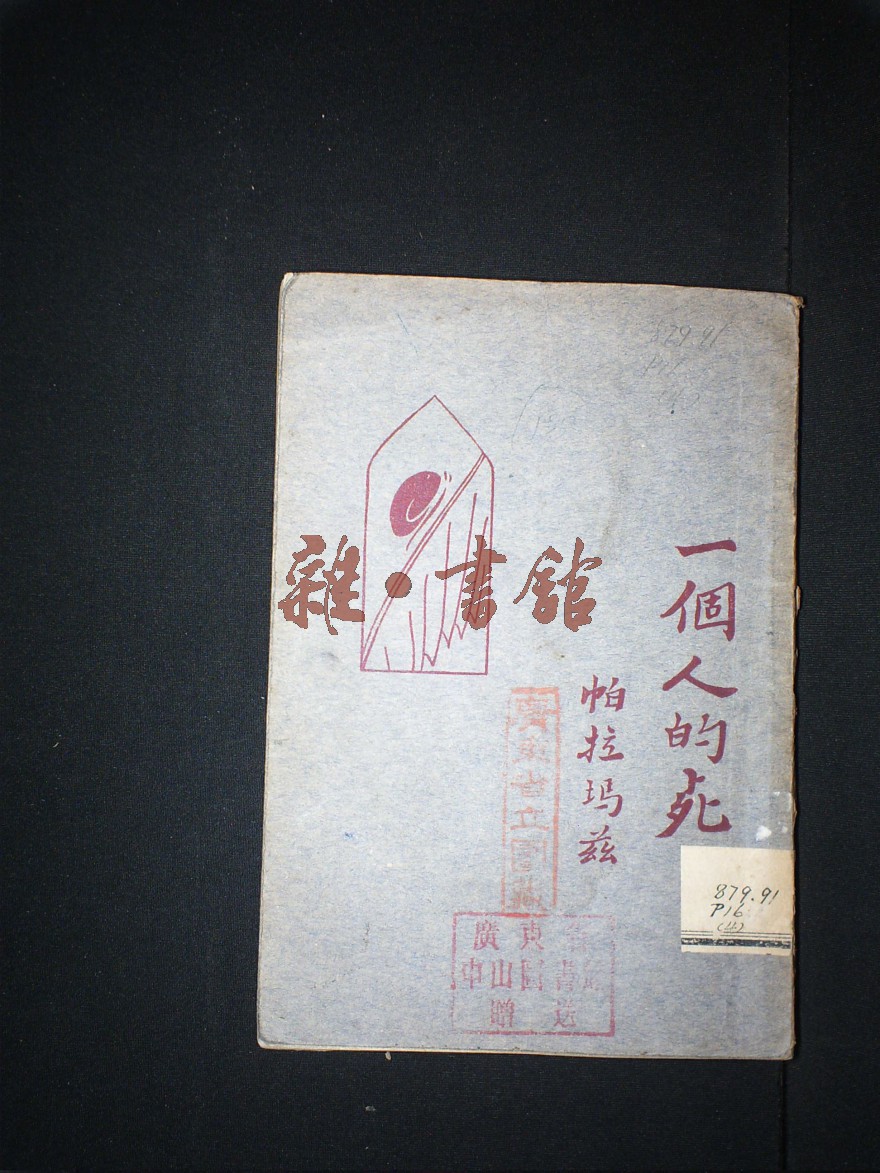 一個人的死
帕拉玛兹
雜·書館
廣東省立圖
廣東
中山圖書
贈送
879.91
P16
(4)
879.91